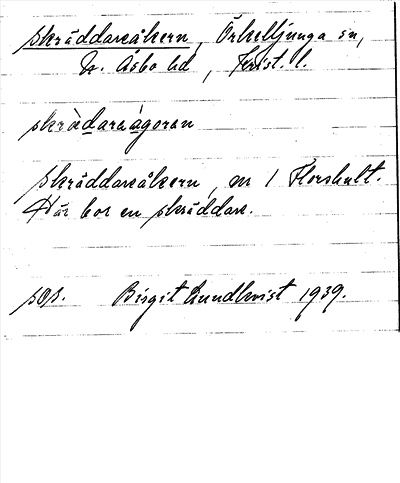 Skräddareåkern, Örkelljunga sn,
N. Åsbo hd, Krist. l.
skrä̀daraágoran
Skräddareåkern, nr 1 Florshult.
Här bor en skräddare.
sos. Birgit Lundkvist 1939.